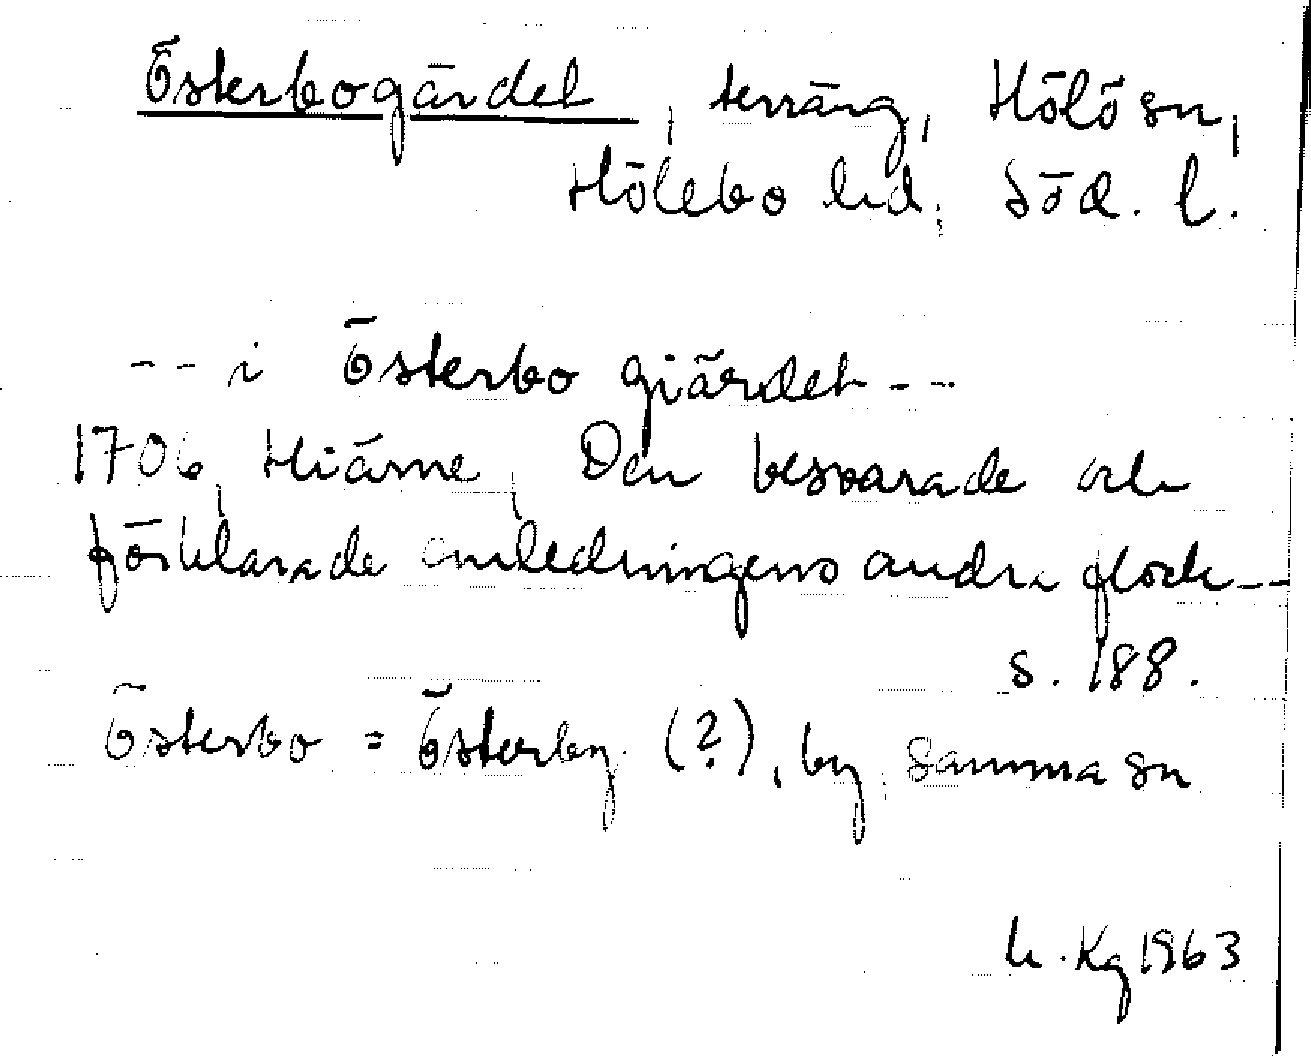 Österbogärdet, terräng, Hölö sn,
Hölebo hd, Söd. l.
-- i Österbo giärdet --
1706, Hiärne, Den besvarade och
förklarade anledningens andra flock --
s. 188.
Österbo = Österby (?), by, samma sn
Kg 1963